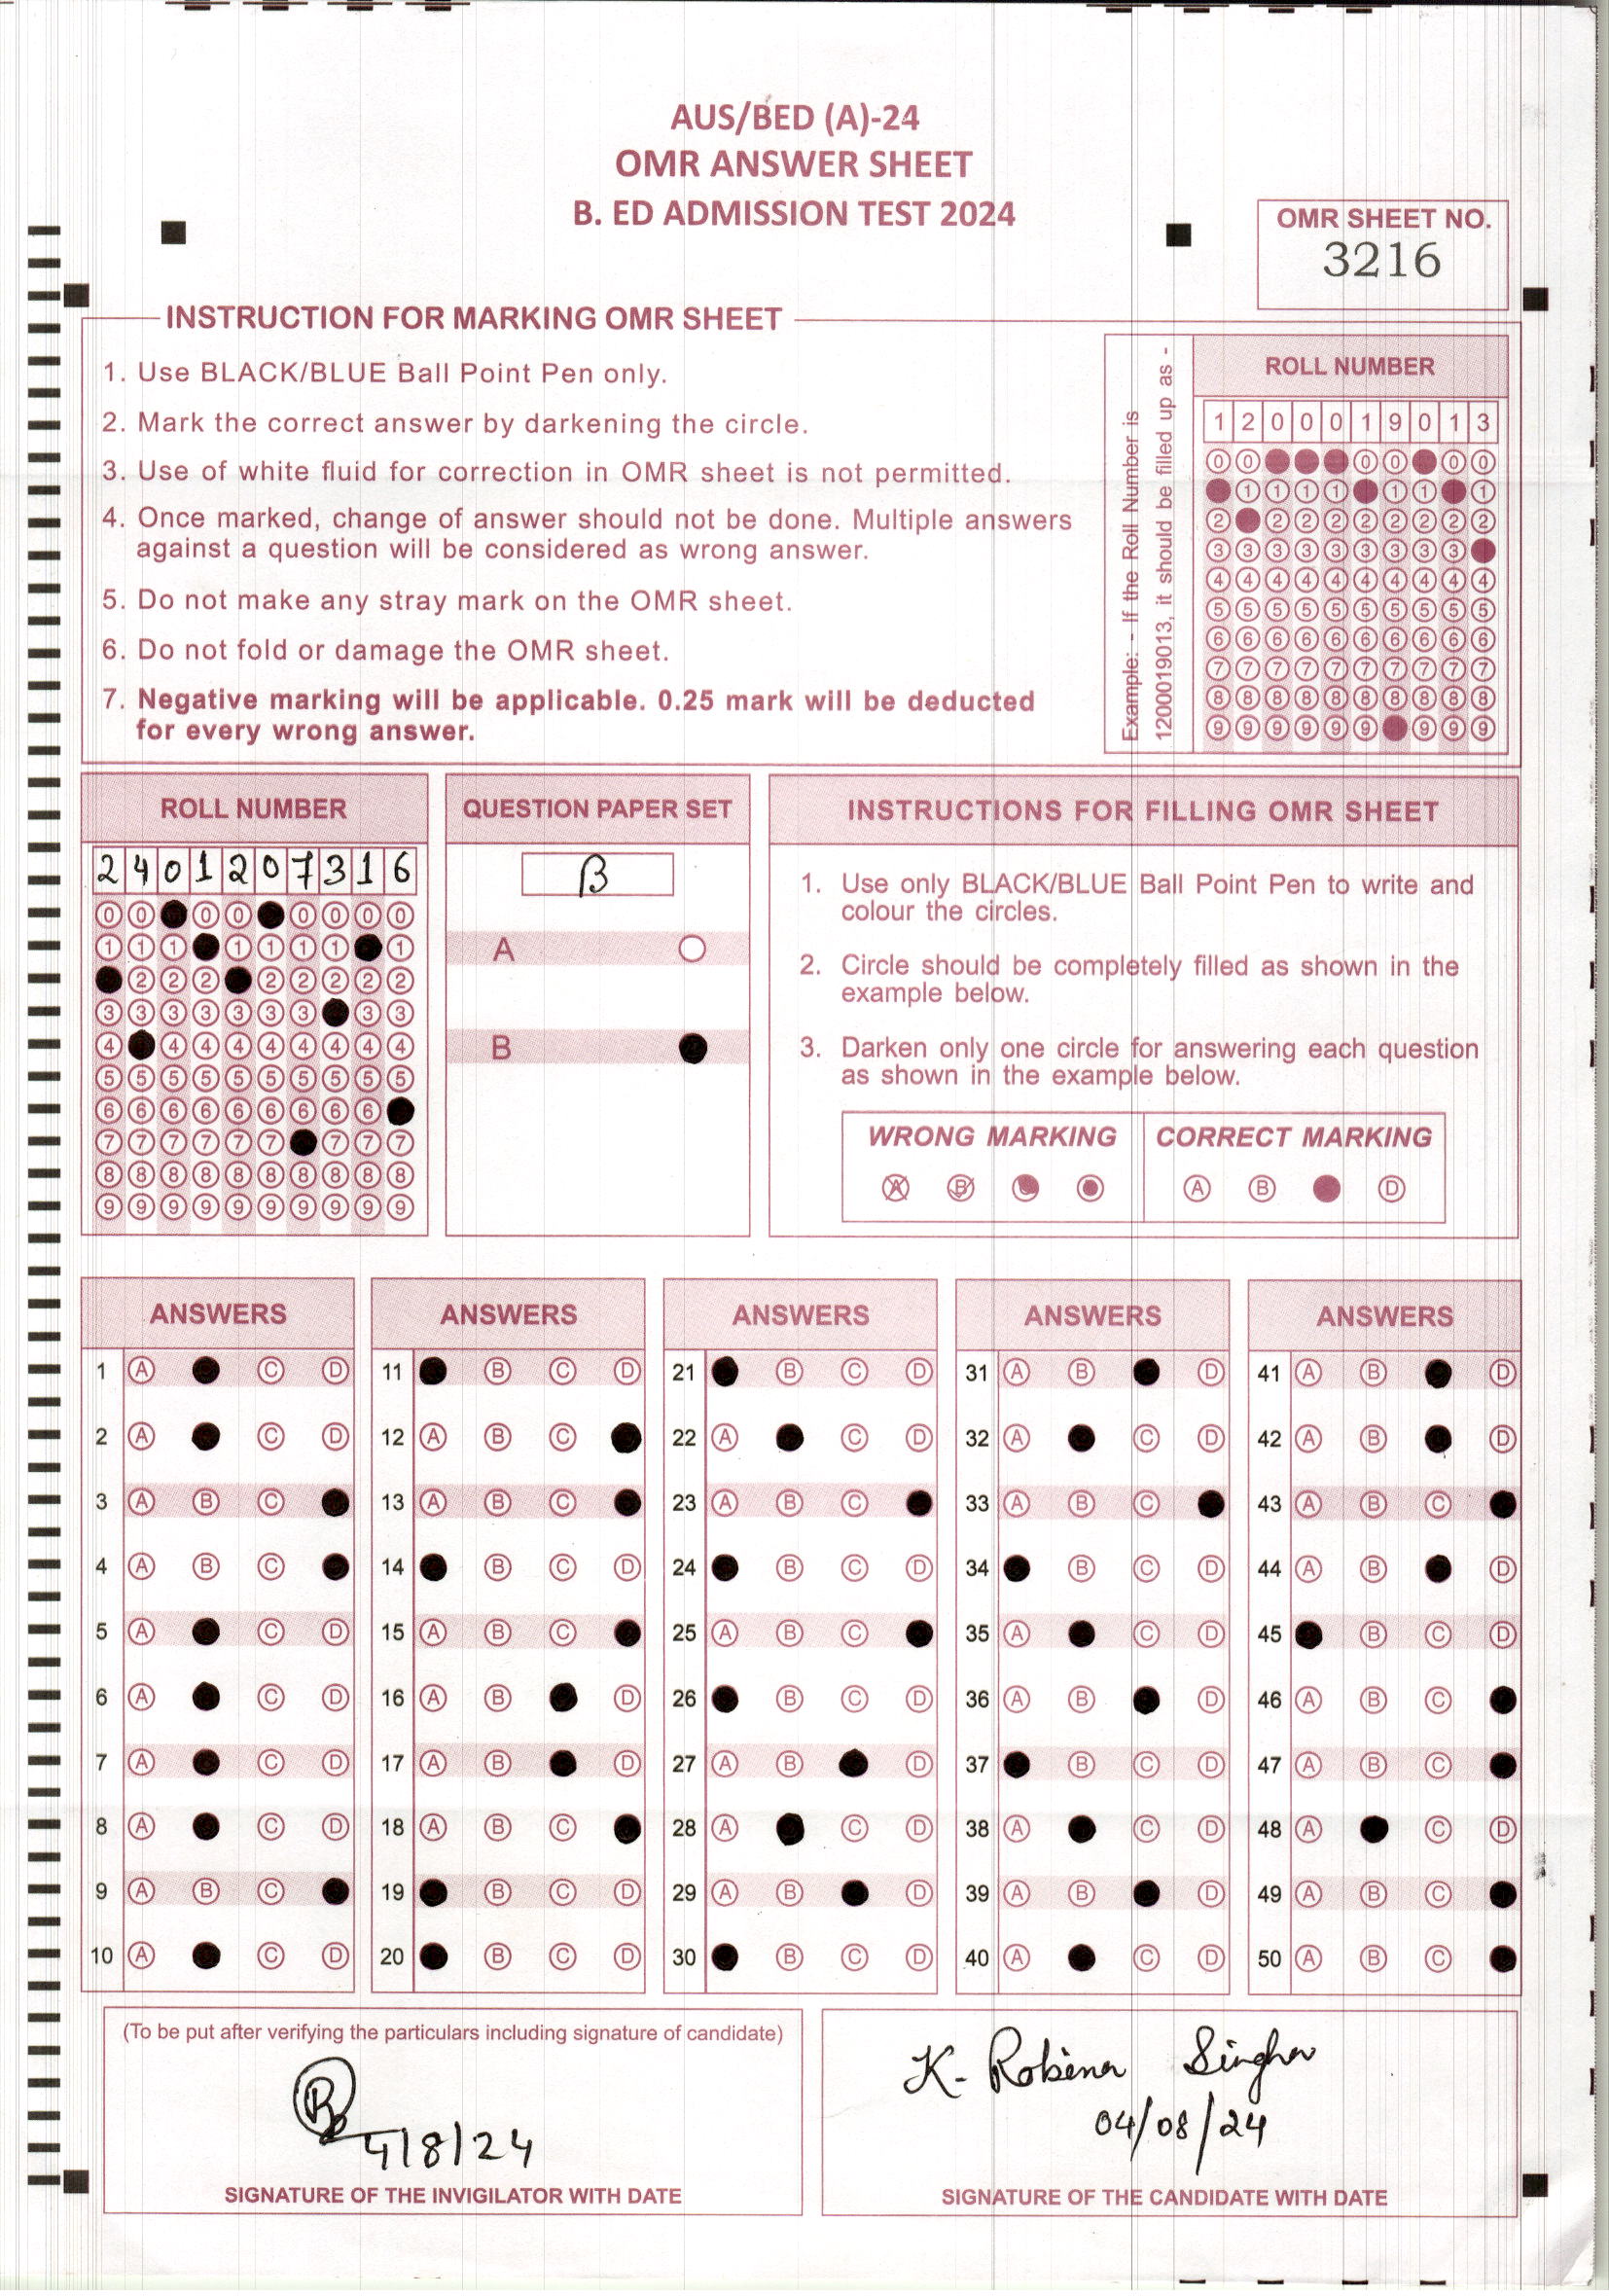 AUS/BED (A)-24
OMR ANSWER SHEET
B. ED ADMISSION TEST 2024
OMR SHEET NO.
3216
INSTRUCTION FOR MARKING OMR SHEET
1. Use BLACK/BLUE Ball Point Pen only.
2. Mark the correct answer by darkening the circle.
3. Use of white fluid for correction in OMR sheet is not permitted.
4. Once marked, change of answer should not be done. Multiple answers
against a question will be considered as wrong answer.
5. Do not make any stray mark on the OMR sheet.
6. Do not fold or damage the OMR sheet.
7. Negative marking will be applicable. 0.25 mark will be deducted
for every wrong answer.
Example: - If the Roll Number is
1200019013, it should be filled up as -
ROLL NUMBER
1 2 0 0 0 1 9 0 1 3
0 0 0 0 0 0
1 1 1 1 1 1 1
2 2 2 2 2 2 2 2 2
3 3 3 3 3 3 3 3 3
4 4 4 4 4 4 4 4 4 4
5 5 5 5 5 5 5 5 5 5
6 6 6 6 6 6 6 6 6 6
7 7 7 7 7 7 7 7 7 7
8 8 8 8 8 8 8 8 8 8
9 9 9 9 9 9 9 9 9
ROLL NUMBER
2 4 0 1 2 0 7 3 1 6
0 0 0 0 0 0 0 0
1 1 1 1 1 1 1 1
2 2 2 2 2 2 2 2
3 3 3 3 3 3 3 3 3
4 4 4 4 4 4 4 4 4
5 5 5 5 5 5 5 5 5 5
6 6 6 6 6 6 6 6 6
7 7 7 7 7 7 7 7 7
8 8 8 8 8 8 8 8 8 8
9 9 9 9 9 9 9 9 9 9
QUESTION PAPER SET
B
A
B
INSTRUCTIONS FOR FILLING OMR SHEET
1. Use only BLACK/BLUE Ball Point Pen to write and
colour the circles.
2. Circle should be completely filled as shown in the
example below.
3. Darken only one circle for answering each question
as shown in the example below.
WRONG MARKING
A B
CORRECT MARKING
A B D
ANSWERS
1 A C D
2 A C D
3 A B C
4 A B C
5 A C D
6 A C D
7 A C D
8 A C D
9 A B C
10 A C D
ANSWERS
11 B C D
12 A B C
13 A B C
14 B C D
15 A B C
16 A B D
17 A B D
18 A B C
19 B C D
20 B C D
ANSWERS
21 B C D
22 A C D
23 A B C
24 B C D
25 A B C
26 B C D
27 A B D
28 A C D
29 A B D
30 B C D
ANSWERS
31 A B D
32 A C D
33 A B C
34 B C D
35 A C D
36 A B D
37 B C D
38 A C D
39 A B D
40 A C D
ANSWERS
41 A B D
42 A B D
43 A B C
44 A B D
45 B C D
46 A B C
47 A B C
48 A C D
49 A B C
50 A B C
(To be put after verifying the particulars including signature of candidate)
4/8/24
SIGNATURE OF THE INVIGILATOR WITH DATE
K. Robina Singha
04/08/24
SIGNATURE OF THE CANDIDATE WITH DATE